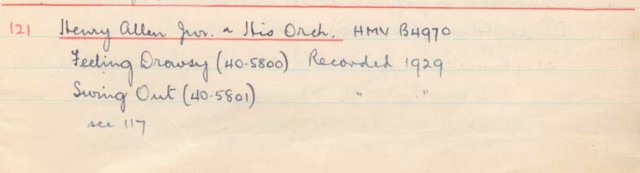 121 Henry Allen Jnr. & His Orch. HMV B4970
Feeling Drowsy (40-5800) Recorded 1929
Swing Out (40-5801) " "
see 117